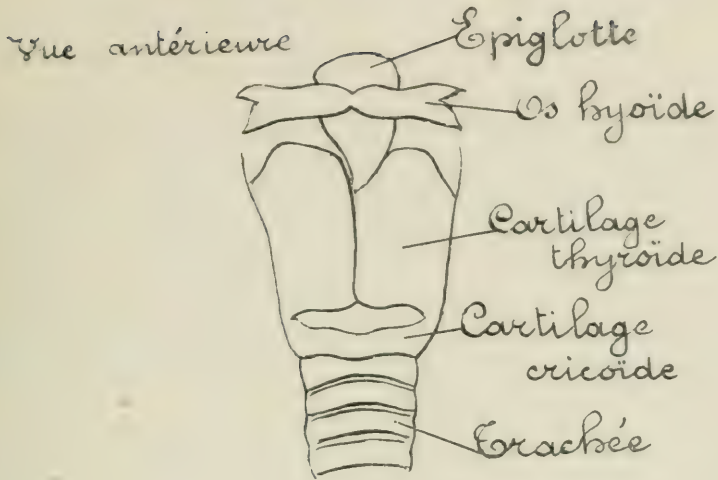 Vue antérieure
Epiglotte
Os hyoïde
Cartilage
thyroïde
Cartilage
cricoïde
Trachée